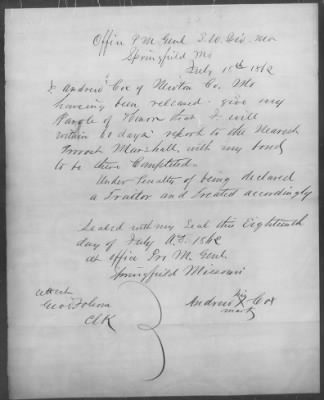 Office P M Genl S. W. Div. Mo
Springfield Mo
July 18th 1862
I Andrew Cox of Newton Co. Mo
having been released give my
Parole of Honor that I will
within 60 days report to the Nearest
Provost Marshall, with my bond
to be there Completed.
Under Penalty of being declared
a Traitor and treated accordingly
Sealed with my Seal this Eighteenth
day of July A.D. 1862
at office Pro M. Genl.
Springfield Missouri
Attest
Geo Folsom
Clk
his
Andrew X Cox
mark